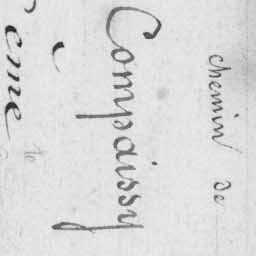 chemin de
Compaissy
eme